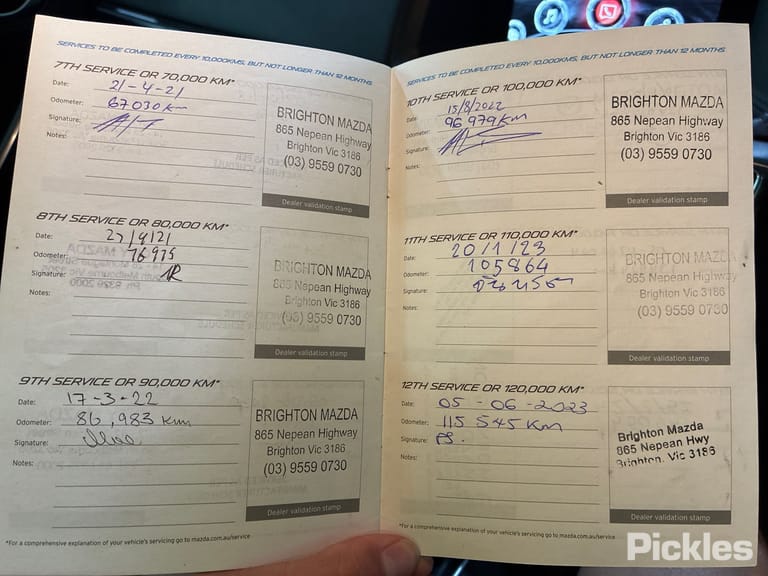 SERVICES TO BE COMPLETED EVERY 10,000KMS, BUT NOT LONGER THAN 12 MONTHS
7TH SERVICE OR 70,000 KM*
Date: 21-4-21
Odometer: 67030 km
Signature:
Notes:
BRIGHTON MAZDA
865 Nepean Highway
Brighton Vic 3186
(03) 9559 0730
Dealer validation stamp
8TH SERVICE OR 80,000 KM*
Date: 27/9/21
Odometer: 76975
Signature:
Notes:
BRIGHTON MAZDA
865 Nepean Highway
Brighton Vic 3186
(03) 9559 0730
Dealer validation stamp
9TH SERVICE OR 90,000 KM*
Date: 17-3-22
Odometer: 86,983 km
Signature:
Notes:
BRIGHTON MAZDA
865 Nepean Highway
Brighton Vic 3186
(03) 9559 0730
Dealer validation stamp
*For a comprehensive explanation of your vehicle's servicing go to mazda.com.au/service
SERVICES TO BE COMPLETED EVERY 10,000KMS, BUT NOT LONGER THAN 12 MONTHS
10TH SERVICE OR 100,000 KM*
Date: 15/8/2022
Odometer: 96 979 km
Signature:
Notes:
BRIGHTON MAZDA
865 Nepean Highway
Brighton Vic 3186
(03) 9559 0730
Dealer validation stamp
11TH SERVICE OR 110,000 KM*
Date: 20/1/23
Odometer: 105864
Signature:
Notes:
BRIGHTON MAZDA
865 Nepean Highway
Brighton Vic 3186
(03) 9559 0730
Dealer validation stamp
12TH SERVICE OR 120,000 KM*
Date: 05-06-2023
Odometer: 115 545 Km
Signature:
Notes:
Brighton Mazda
865 Nepean Hwy
Brighton. Vic 3186
Dealer validation stamp
*For a comprehensive explanation of your vehicle's servicing go to mazda.com.au/service
Pickles